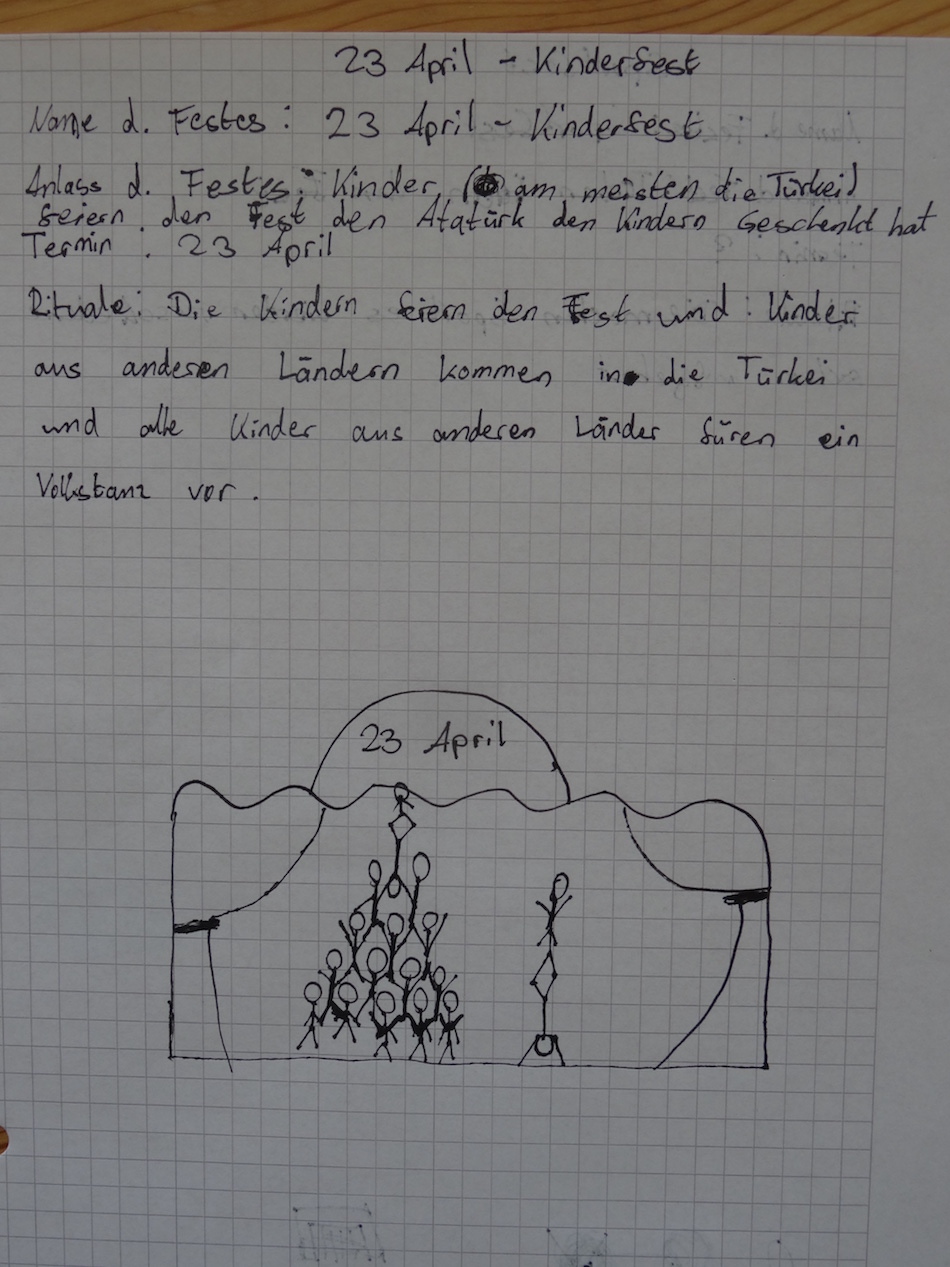 23 April - Kinderfest
Name d. Festes: 23 April - Kinderfest
Anlass d. Festes: Kinder, ( am meisten die Türkei)
feiern den Fest den Atatürk den Kindern Geschenkt hat
Termin : 23 April
Rituale: Die Kindern feiern den Fest und Kinder
aus anderen Ländern kommen in die Türkei
und alle Kinder aus anderen Länder füren ein
Volkstanz vor.
23 April